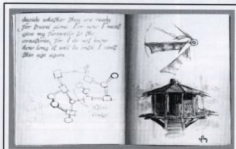 decide whether they are ready
for travel alone. For now I must
give my farewells to the
creatures, for I do not know
how long it will be until I visit
this age again.